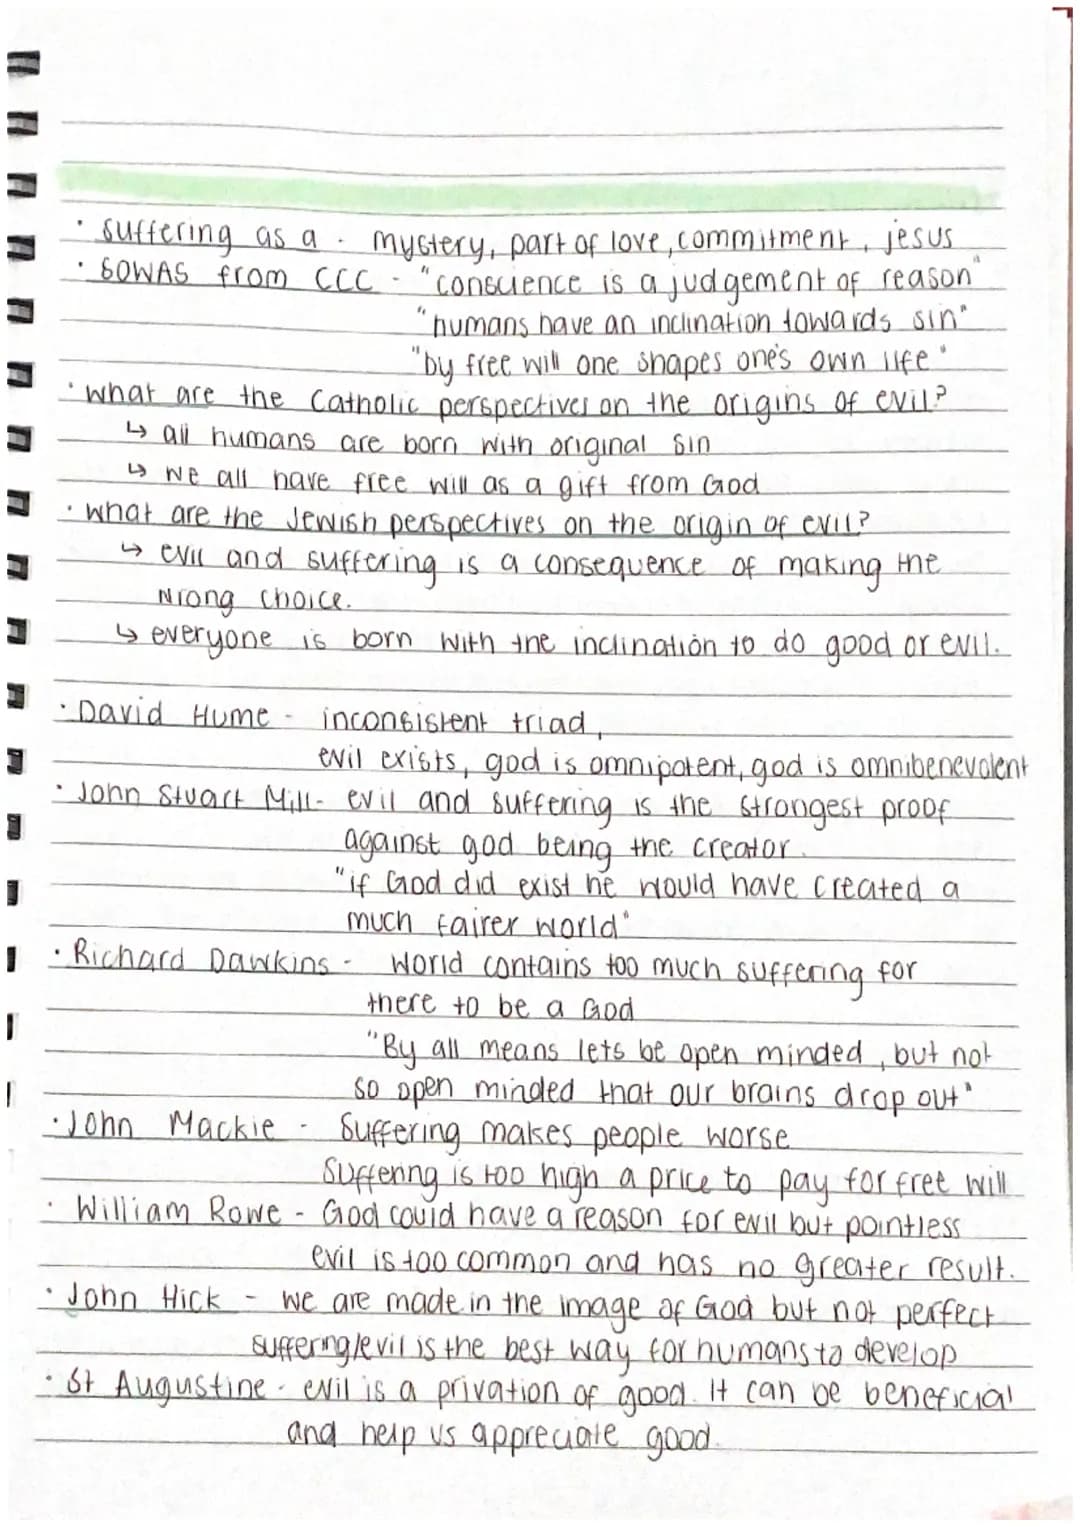 · suffering as a - mystery, part of love, commitment, jesus
· SOWAS from CCC - "conscience is a judgement of reason"
"humans have an inclination towards sin"
"by free will one shapes one's own life"
· what are the Catholic perspectives on the origins of evil?
↳ all humans are born with original sin
↳ we all have free will as a gift from God
· what are the Jewish perspectives on the origin of evil?
↳ evil and suffering is a consequence of making the
wrong choice.
↳ everyone is born with the inclination to do good or evil.
· David Hume - inconsistent triad,
evil exists, god is omnipotent, god is omnibenevolent
· John Stuart Mill - evil and suffering is the strongest proof
against god being the creator.
"if God did exist he would have created a
much fairer world"
· Richard Dawkins - world contains too much suffering for
there to be a God
"By all means lets be open minded, but not
so open minded that our brains drop out"
· John Mackie - Suffering makes people worse
Suffering is too high a price to pay for free will
· William Rowe - God could have a reason for evil but pointless
evil is too common and has no greater result.
· John Hick - we are made in the image of God but not perfect
suffering/evil is the best way for humans to develop
· St Augustine - evil is a privation of good. It can be beneficial
and help us appreciate good.